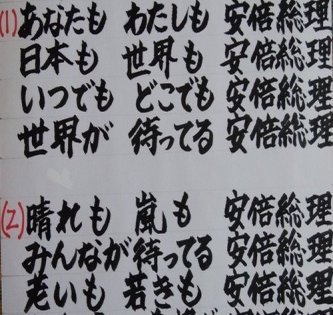 (1)あなたも わたしも 安倍総理
日本も 世界も 安倍総理
いつでも どこでも 安倍総理
世界が 待ってる 安倍総理
(2)晴れも 嵐も 安倍総理
みんなが待ってる 安倍総理
老いも 若きも 安倍総理